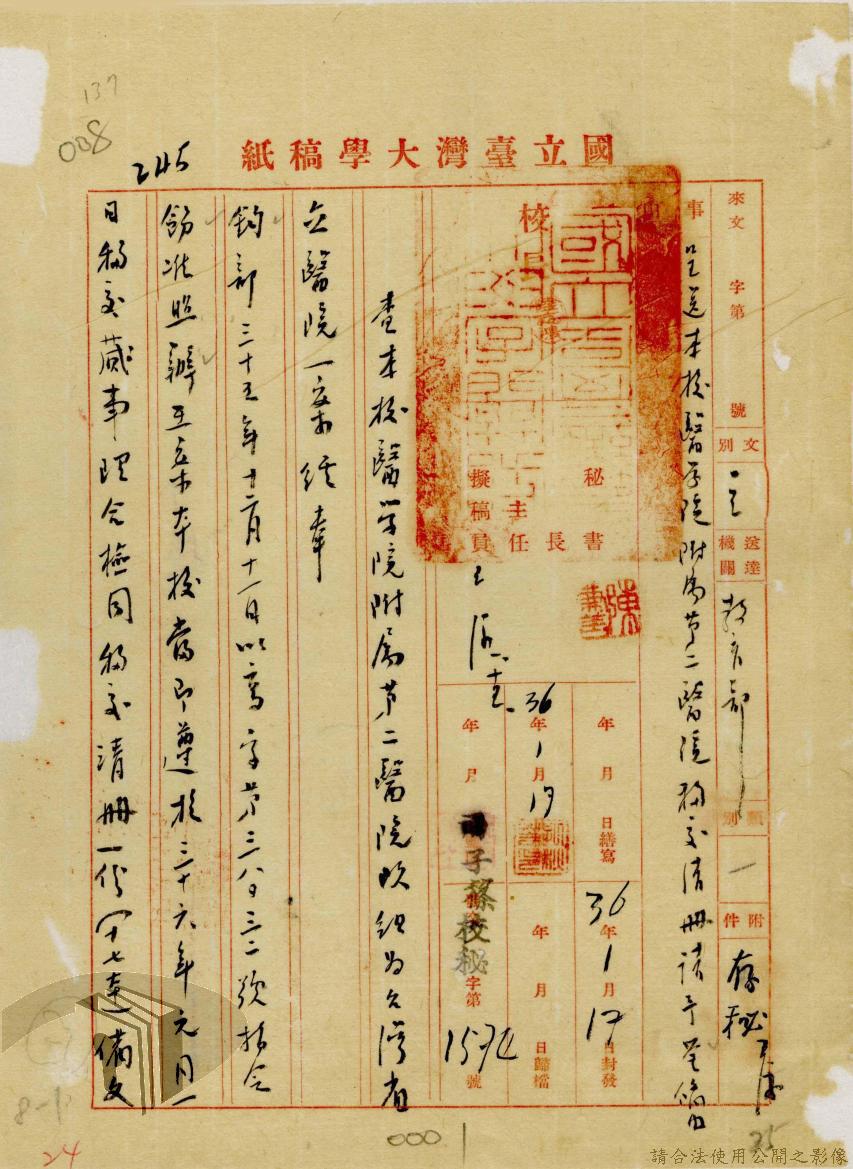 137
008
245
國立臺灣大學稿紙
來文 字第 號
文別 呈
送達機關 教育部
類別
附件 一
存秘
事由 呈送本校醫學院附屬第二醫院移交清冊請予鑒備由
校
秘書 主任 長 擬稿員
陳
36年1月17
年 月 日繕寫
36年1月17日封發
年 月 日歸檔
子 校秘
字第 號
查本校醫學院附屬第二醫院改組為台灣省
立醫院一案經奉
鈞部三十五年十二月十一日以高字第三八三三二號指令
飭准照辦在案本校當即遵於三十六年元月一
日移交蕆事理合檢同移交清冊一份(十七本)備文
0001
25
24
請合法使用公開之影像